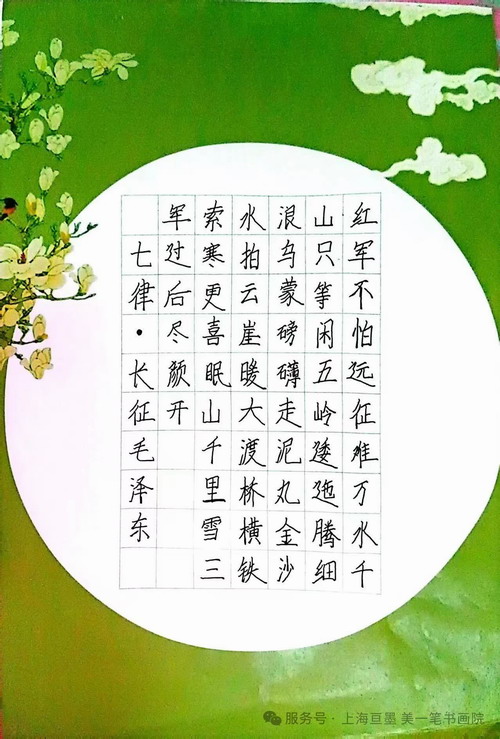 红军不怕远征难万水千
山只等闲五岭逶迤腾细
浪乌蒙磅礴走泥丸金沙
水拍云崖暖大渡桥横铁
索寒更喜眠山千里雪三
军过后尽颜开
七律·长征毛泽东
服务号·上海亘墨 美一笔书画院